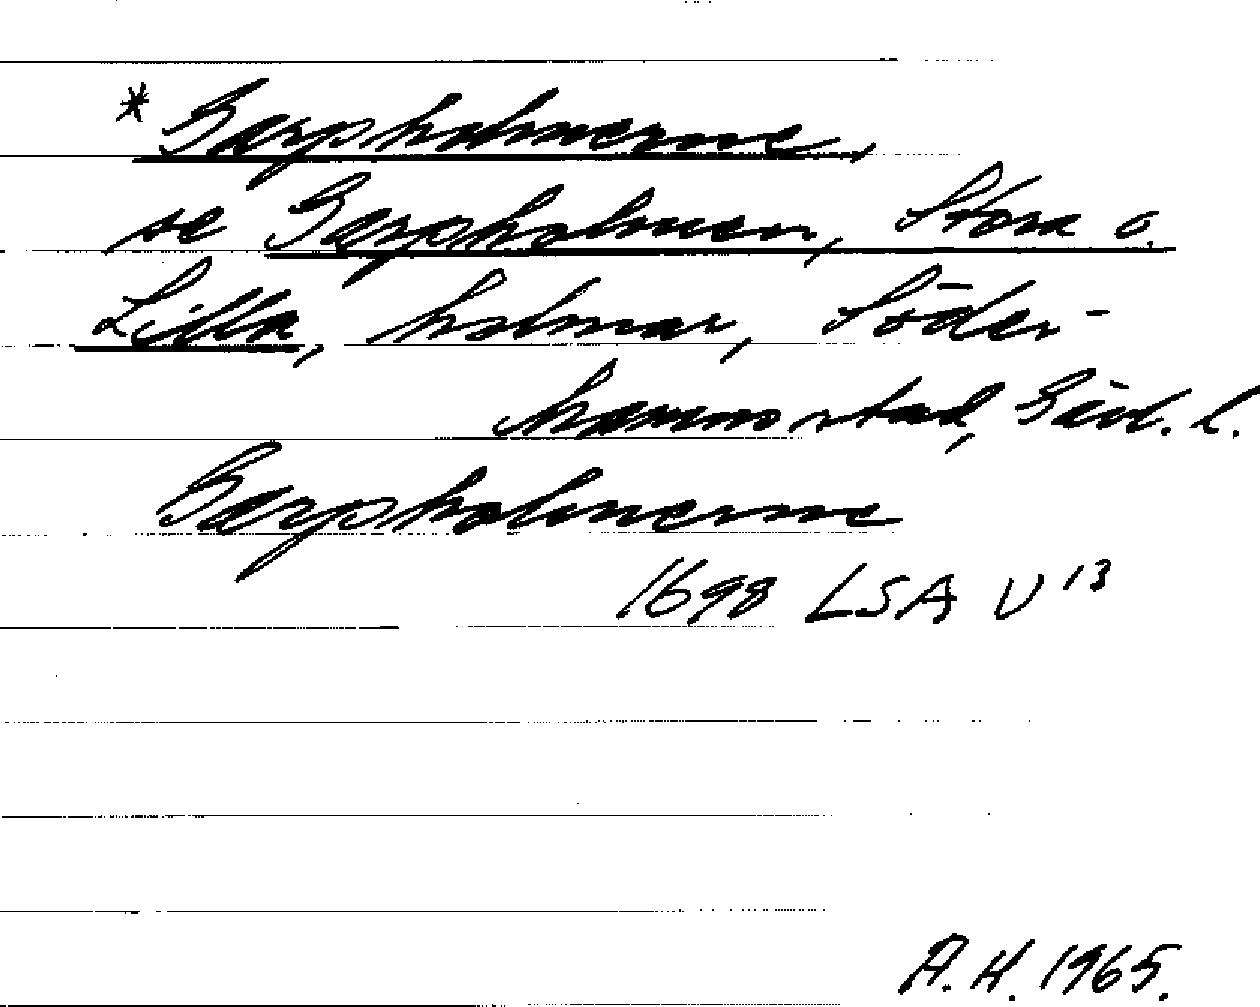 * Garpholmerne,
se Garpholmen, Stora o.
Lilla, holmar, Söder-
hamns stad, Gävl. l.
Garpholmerne
1698 LSA U 13
A.H. 1965.